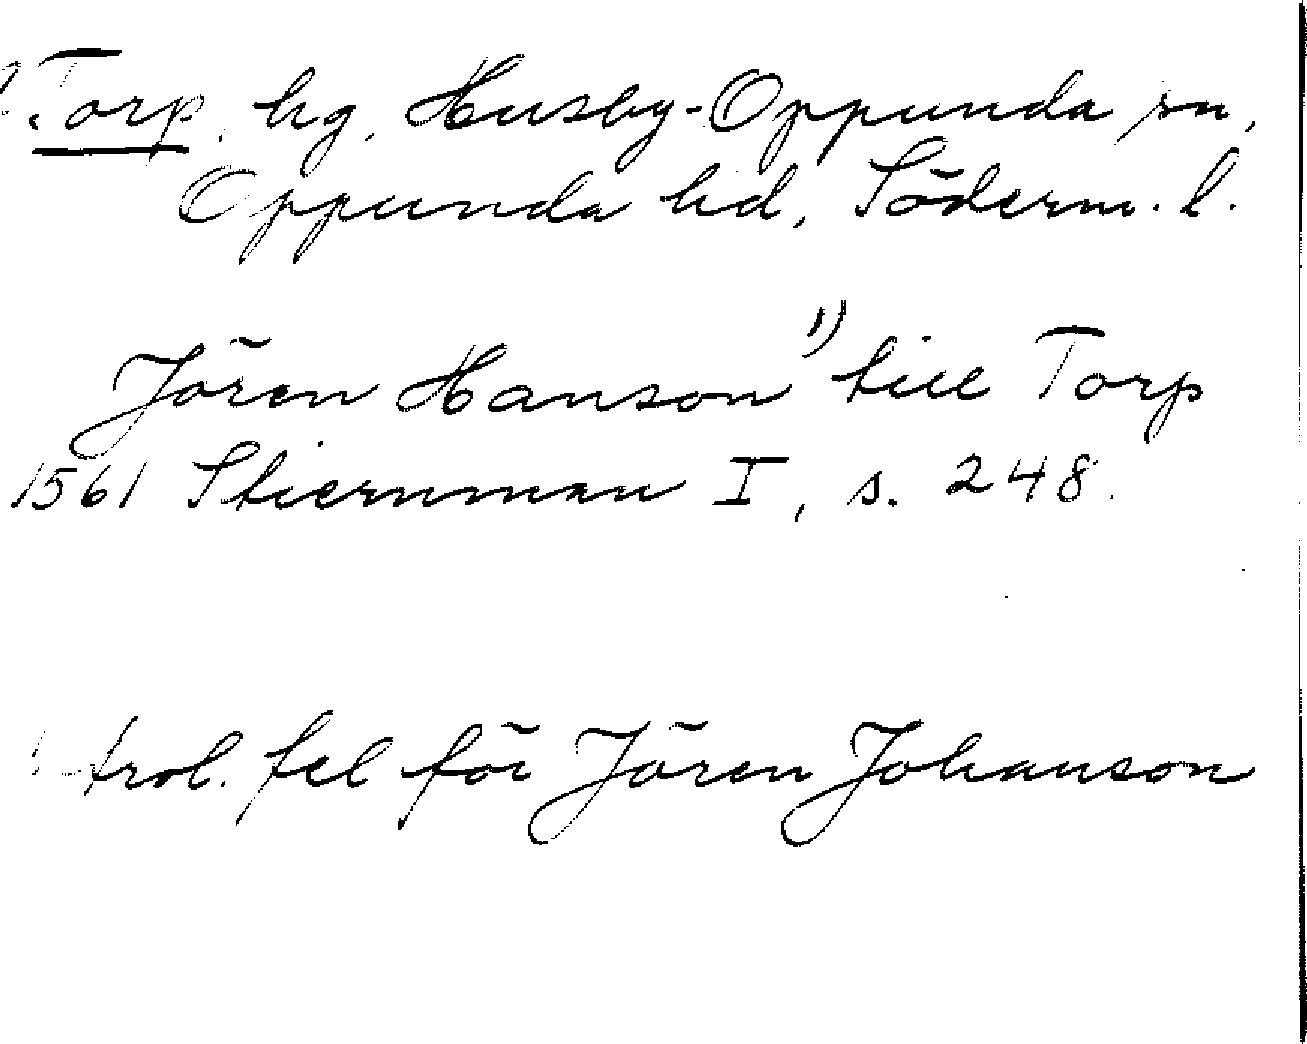 Torp, hg, Husby-Oppunda sn,
Oppunda hd, Söderm. l.
Jören Hanson 1) till Torp
1561 Stiernman I, s. 248.
trol. fel för Jören Johanson